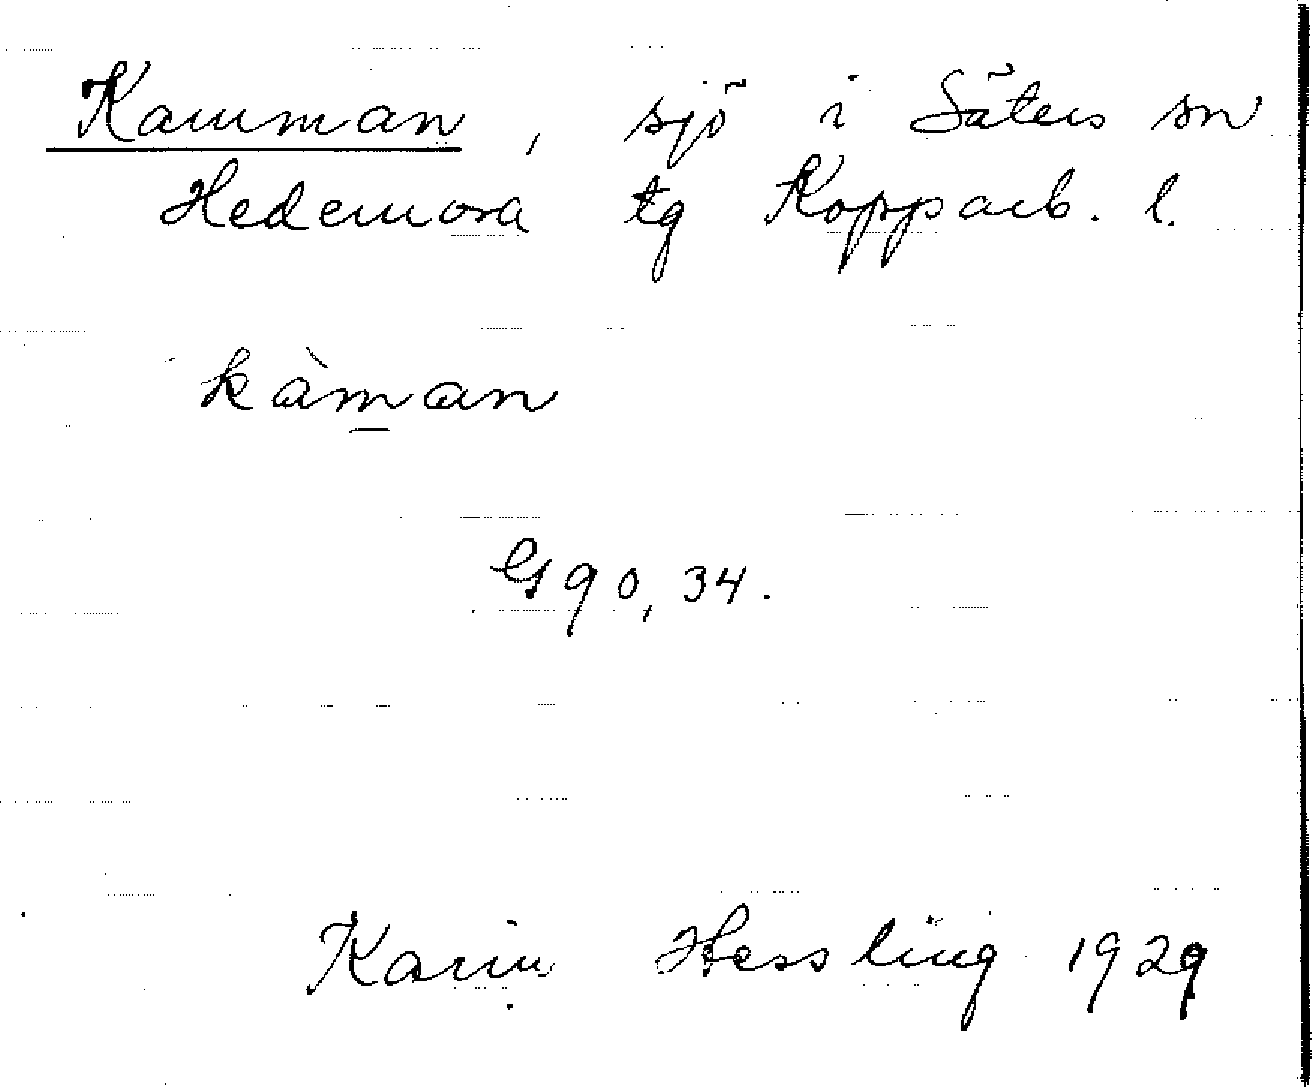 Kamman, sjö i Säters sn
Hedemora tg Kopparb. l.
kàm̲an
G 90, 34.
Karin Hessling 1929